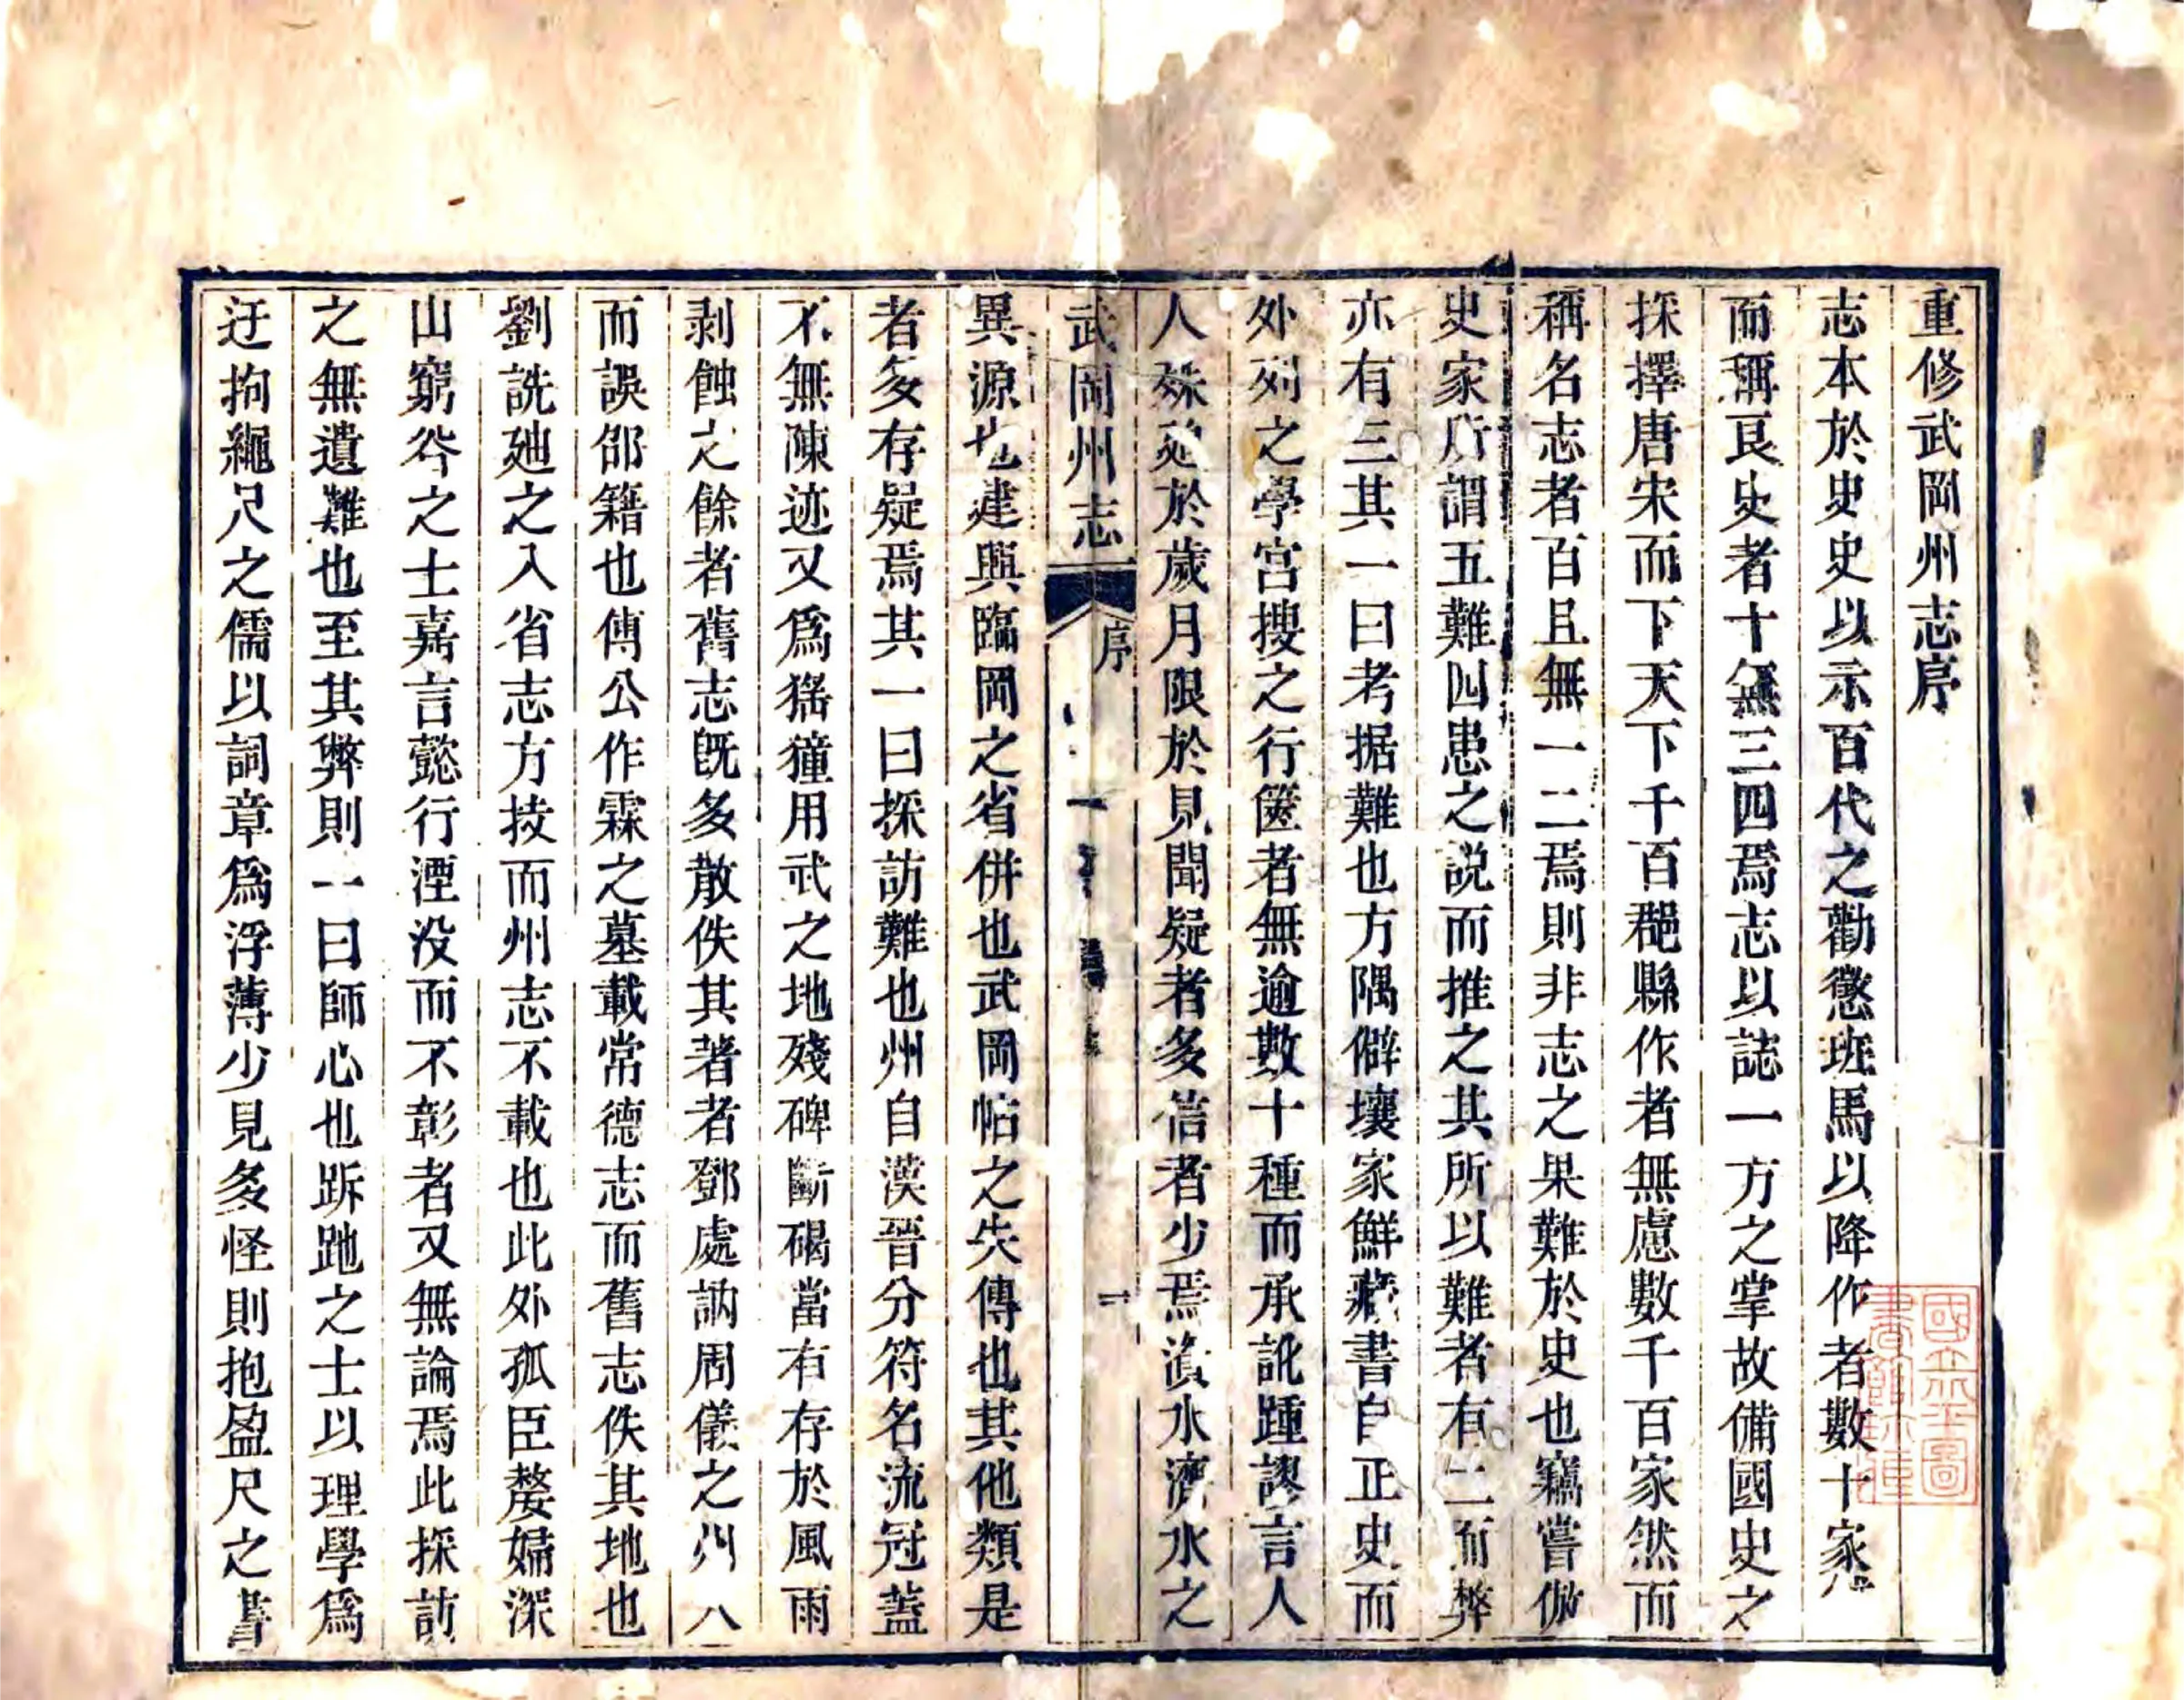 重修武岡州志序
志本於史史以示百代之勸懲班馬以降作者數十家
而稱良史者十無三四焉志以誌一方之掌故備國史之
採擇唐宋而下天下千百郡縣作者無慮數千百家然而
稱名志者百且無一二焉則非志之果難於史也竊嘗倣
史家所謂五難四患之說而推之其所以難者有二而弊
亦有三其一曰考据難也方隅僻壤家鮮藏書自正史而
外列之學宮搜之行篋者無逾數十種而承訛踵謬言人
人殊延於歲月限於見聞疑者多信者少焉濱水濟水之
異源也建興臨岡之省併也武岡帖之失傳也其他類是
者多存疑焉其一曰採訪難也州自漢晉分符名流冠蓋
不無陳迹又爲猺獞用武之地殘碑斷碣當有存於風雨
剥蝕之餘者舊志旣多散佚其著者鄧處訥周儀之州人
而誤邵籍也傅公作霖之墓載常德志而舊志佚其地也
劉詵廸之入省志方技而州志不載也此外孤臣嫠婦深
山窮谷之士嘉言懿行湮没而不彰者又無論焉此採訪
之無遺難也至其弊則一曰師心也跅跑之士以理學爲
迂拘繩尺之儒以詞章爲浮薄少見多怪則抱盈尺之書
武岡州志
序
一
國立北平圖
書館珍藏